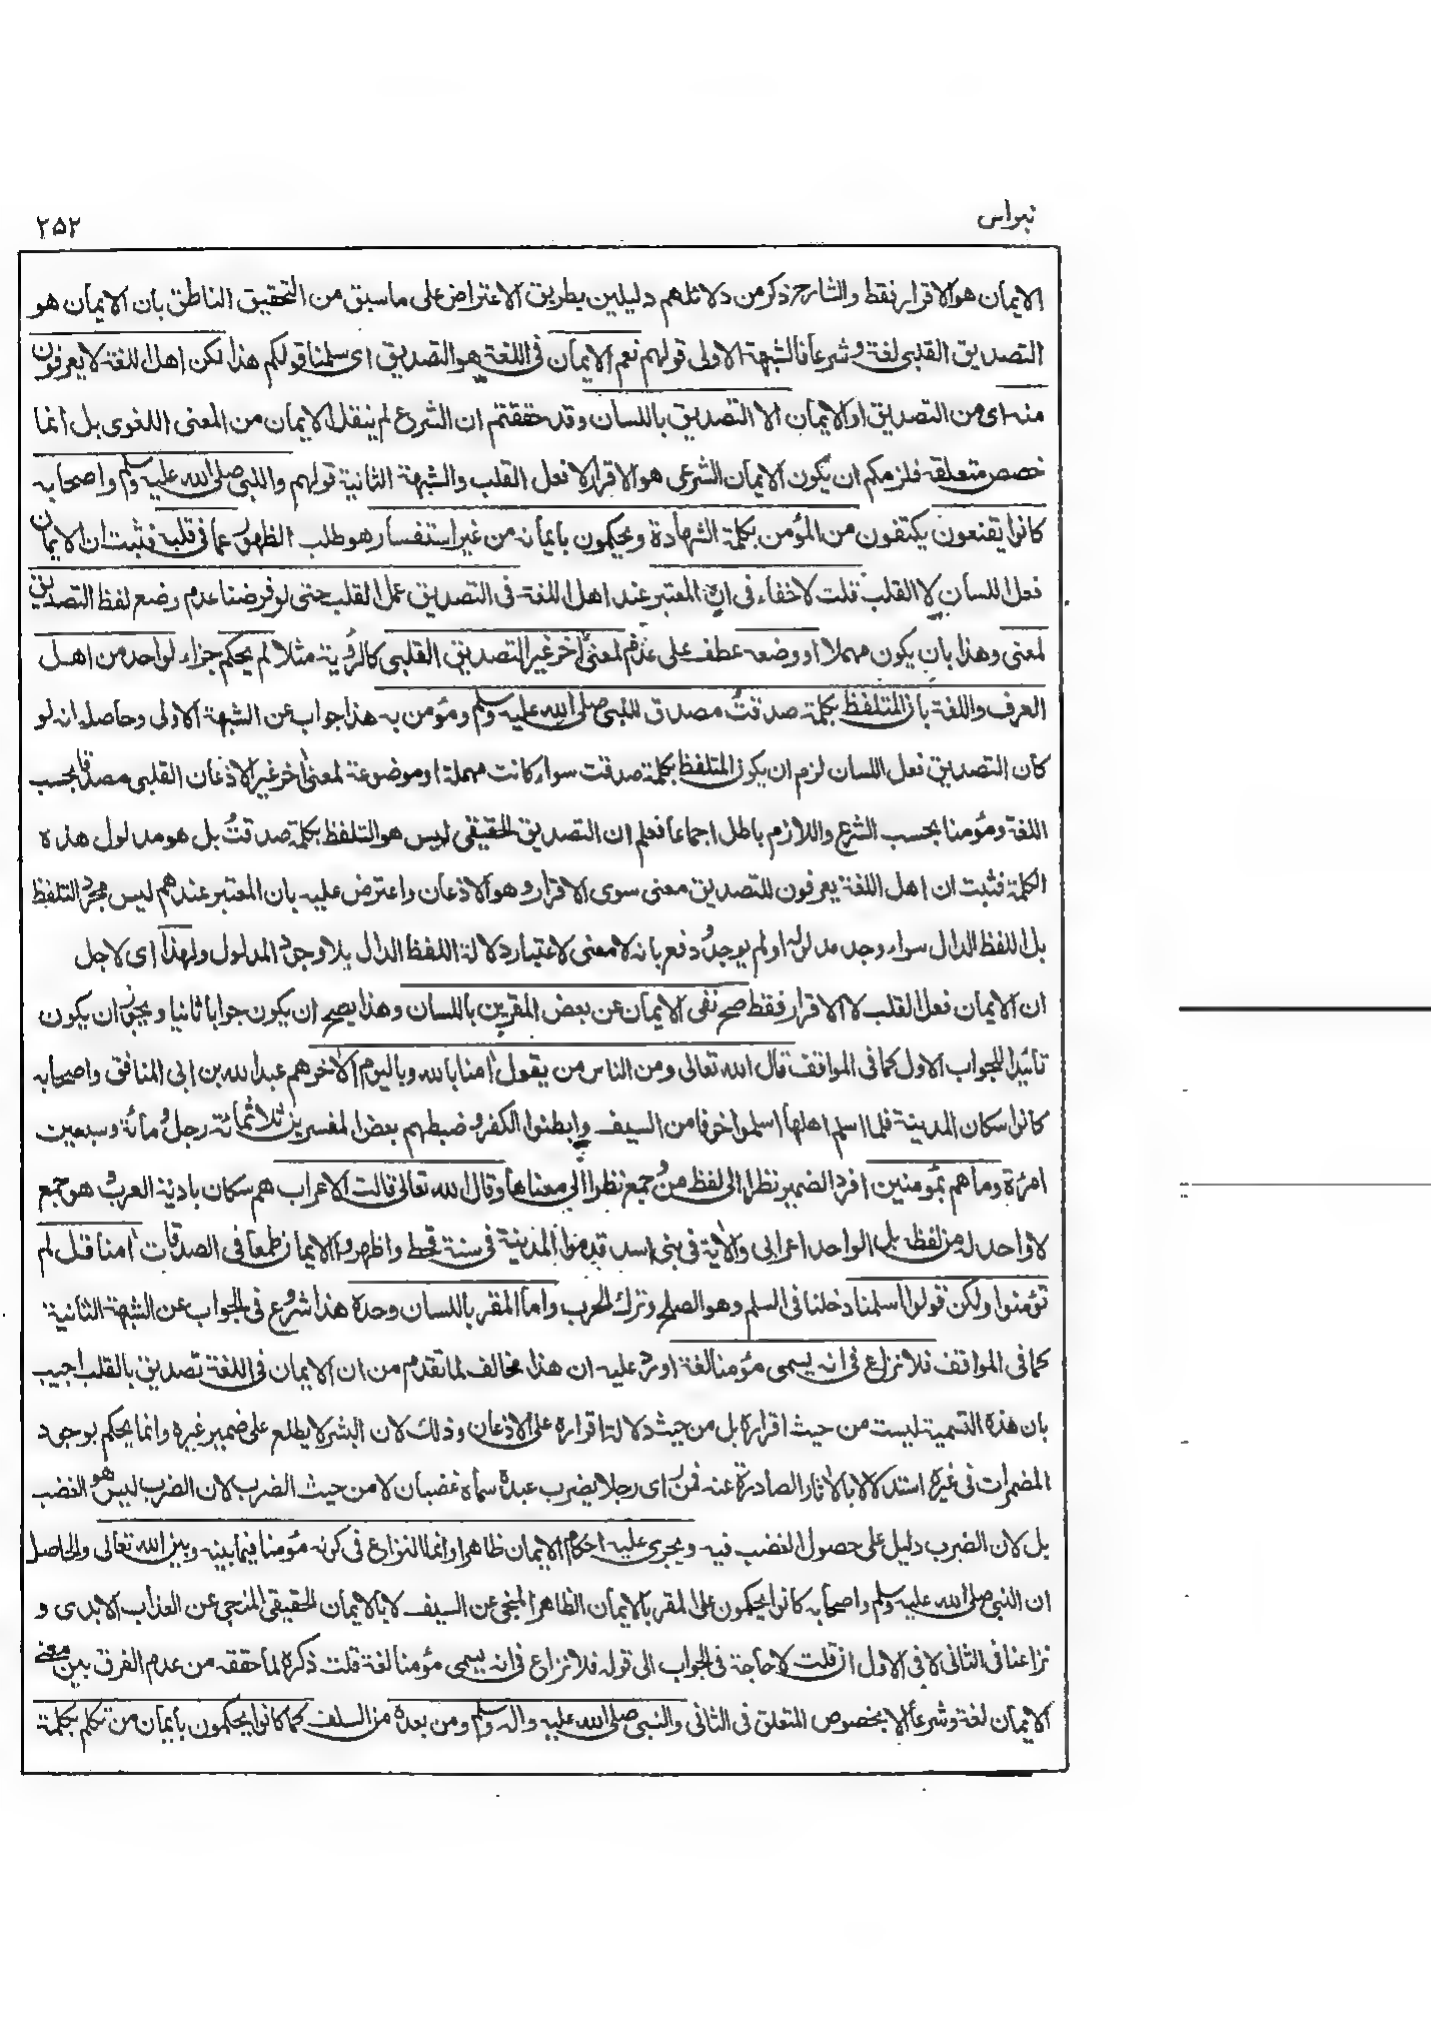 نبراس
٢٥٢
الايمان هو الاقرار فقط والشارح ذكر من دلائلهم دليلين بطريق الاعتراض على ما سبق من التحقيق الناطق بان الايمان هو
التصديق القلبى لغة وشرعا فالشبهة الاولى قولهم نعم الايمان فى اللغة هو التصديق اى سلمنا قولكم هذا لكن اهل اللغة لا يعرفون
منه اى من التصديق او الايمان الا التصديق باللسان وقد حققتم ان الشرع لم ينقل الايمان من المعنى اللغوى بل انما
خصص متعلقه فلزمكم ان يكون الايمان الشرعى هو الاقرار لا فعل القلب والشبهة الثانية قولهم والنبى صلى الله عليه وسلم واصحابه
كانوا يقنعون يكتفون من المؤمن بكلمة الشهادة ويحكمون بايمانه من غير استفسار هو طلب الظهور عما فى قلبه فثبت ان الايمان
فعل اللسان لا القلب قلت لا خفاء فى ان المعتبر عند اهل اللغة فى التصديق عمل القلب حتى لو فرضنا عدم وضع لفظ التصديق
لمعنى وهذا بان يكون مهملا او وضعه عطف على عدم لمعنى اخر غير التصديق القلبى كالرؤية مثلا لم يحكم جزاء لواحد من اهل
العرف واللغة بان المتلفظ بكلمة صدقت مصدق للنبى صلى الله عليه وسلم ومؤمن به هذا جواب عن الشبهة الاولى وحاصله انه لو
كان التصديق فعل اللسان لزم ان يكون المتلفظ بكلمة صدقت سواء كانت مهملة او موضوعة لمعنى اخر غير الاذعان القلبى مصدقا بحسب
اللغة ومؤمنا بحسب الشرع واللازم باطل اجماعا فعلم ان التصديق الحقيقى ليس هو التلفظ بكلمة صدقت بل هو مدلول هذه
الكلمة فثبت ان اهل اللغة يعرفون للتصديق معنى سوى الاقرار وهو الاذعان واعترض عليه بان المعتبر عندهم ليس مجرد التلفظ
بل اللفظ الدال سواء وجد مدلوله او لم يوجد ودفع بانه لا معنى لاعتبار دلالة اللفظ الدال بلا وجود المدلول ولهذا اى لاجل
ان الايمان فعل القلب لا الاقرار فقط صح نفى الايمان عن بعض المقرين باللسان وهذا يصح ان يكون جوابا ثانيا ويجوز ان يكون
تائيدا للجواب الاول كما فى المواقف قال الله تعالى ومن الناس من يقول امنا بالله وباليوم الاخر هم عبد الله بن ابى المنافق واصحابه
كانوا سكان المدينة فلما اسلم اهلها اسلموا خوفا من السيف وابطنوا الكفر وضبطهم بعض المفسرين ثلاثمائة رجل ومائة وسبعين
امرأة وما هم بمؤمنين افرد الضمير نظرا الى لفظ من وجمع نظرا الى معناها وقال الله تعالى قالت الاعراب هم سكان بادية العرب هو جمع
لا واحد له من لفظه بل الواحد اعرابى والاية فى بنى اسد قدموا المدينة فى سنة قحط واظهروا الايمان طمعا فى الصدقات امنا قل لم
تؤمنوا ولكن قولوا اسلمنا دخلنا فى السلم وهو الصلح وترك الحرب واما المقر باللسان وحده هذا شروع فى الجواب عن الشبهة الثانية
كما فى المواقف فلا نزاع فى انه يسمى مؤمنا لغة اورد عليه ان هذا مخالف لما تقدم من ان الايمان فى اللغة تصديق بالقلب اجيب
بان هذه التسمية ليست من حيث اقراره بل من حيث دلالة اقراره على الاذعان وذلك لان البشر لا يطلع على ضمير غيره وانما يحكم بوجود
المضمرات فى غيره استدلالا بالاثار الصادرة عنه فمن راى رجلا يضرب عبده سماه غضبان لا من حيث الضرب لان الضرب ليس هو الغضب
بل لان الضرب دليل على حصول الغضب فيه ويجرى عليه احكام الايمان ظاهرا وانما النزاع فى كونه مؤمنا فيما بينه وبين الله تعالى والحاصل
ان النبى صلى الله عليه وسلم واصحابه كانوا يحكمون على المقر بالايمان الظاهر المنجى عن السيف لا بالايمان الحقيقى المنجى عن العذاب الابدى و
نزاعنا فى الثانى لا فى الاول ان قلت لا حاجة فى الجواب الى قوله فلا نزاع فى انه يسمى مؤمنا لغة قلت ذكره لما حققه من عدم الفرق بين معنى
الايمان لغة وشرعا الا بخصوص المتعلق فى الثانى والنبى صلى الله عليه واله وسلم ومن بعده من السلف كما كانوا يحكمون بايمان من تكلم بكلمة